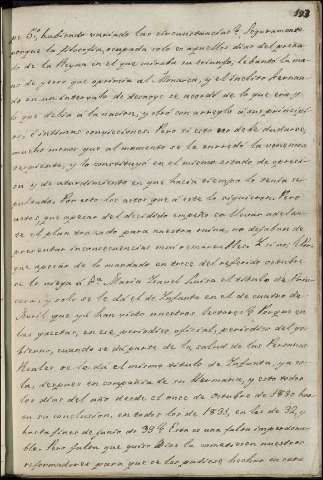 193
pe 5º, habiendo variado las circunstancias? Seguramente
porque la filosofia, ocupada solo en aquellos dias del precia
do de la Reyna en el que miraba su triunfo, levantó la ma
no de yerro que oprimia al Monarca, y el ínclito Fernan
do en un intervalo de descanso se acordó de lo que era, y
lo que debia á la nacion, y obró con arreglo á sus principi
os é íntimas convicciones. Pero si esto no debe dudarse,
mucho menos que al momento se le enroscó la venenosa
serpiente, y lo constituyó en el mismo estado de opresi
on y de aturdimiento en que hacia tiempo lo tenia se
pultado. Por esto los actos que á este le siguieron. Pero
actos que apesar del decidido empeño en llevar adelan
te el plan trazado para nuestra ruina, no dejaban de
presentar inconsecuencias muy remarcables. Y si no; ¿Por
que apesar de lo mandado en trece del referido octubre
se le niega á Dª Maria Isabel Luisa el título de Prin
cesa; y solo se le dá el de Infanta en el de cuatro de
Abril que yá han visto nuestros lectores? ¿Porque en
las gacetas, en ese periodico oficial, periodico del go
bierno, cuando se dá parte de la salud de las Personas
Reales se le dá el mismo título de Infanta, ya so
la, despues en compañia de su Hermana, y esto todos
los dias del año desde el once de octubre de 1830 has
ta su conclusion, en todos los de 1831, en los de 32, y
hasta fines de junio de 33? Esta es una falta imperdona
ble. Pero falta que quiso Dios la cometiesen nuestros
reformadores para que se les pudiese hechar en cara